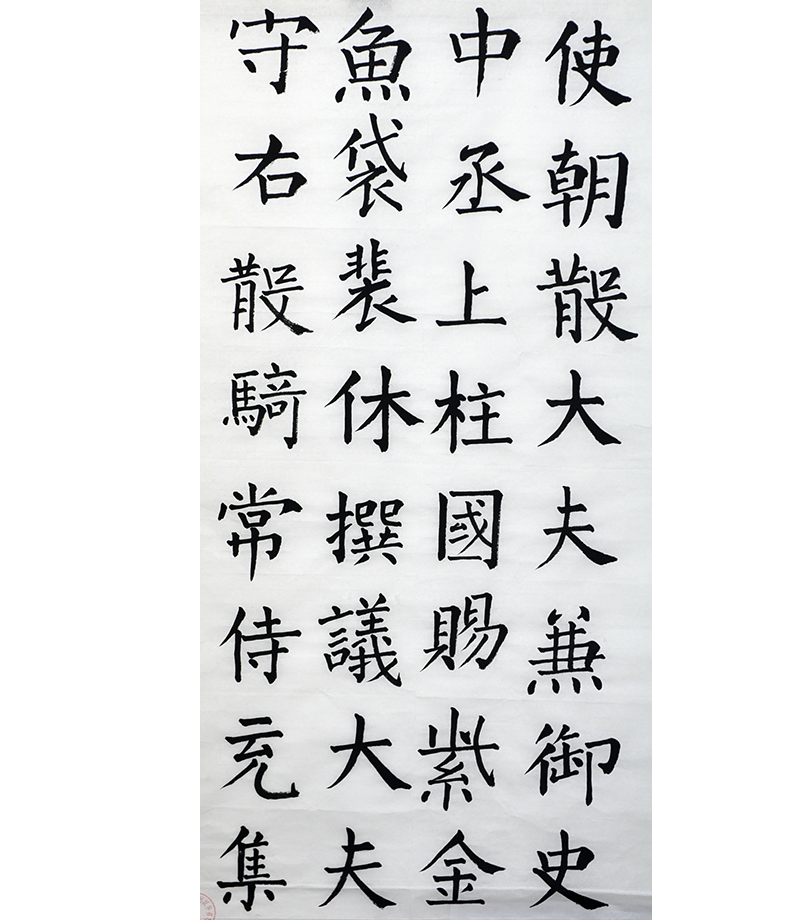 使朝散大夫兼御史
中丞上柱國賜紫金
魚袋裴休撰議大夫
守右散騎常侍充集